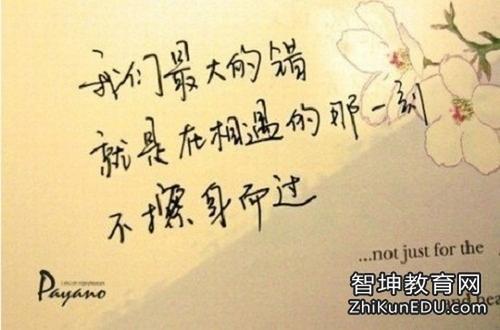 我们最大的错
就是在相遇的那一刻
不擦身而过
...not just for the
Payano
智坤教育网
ZhiKunEDU.com